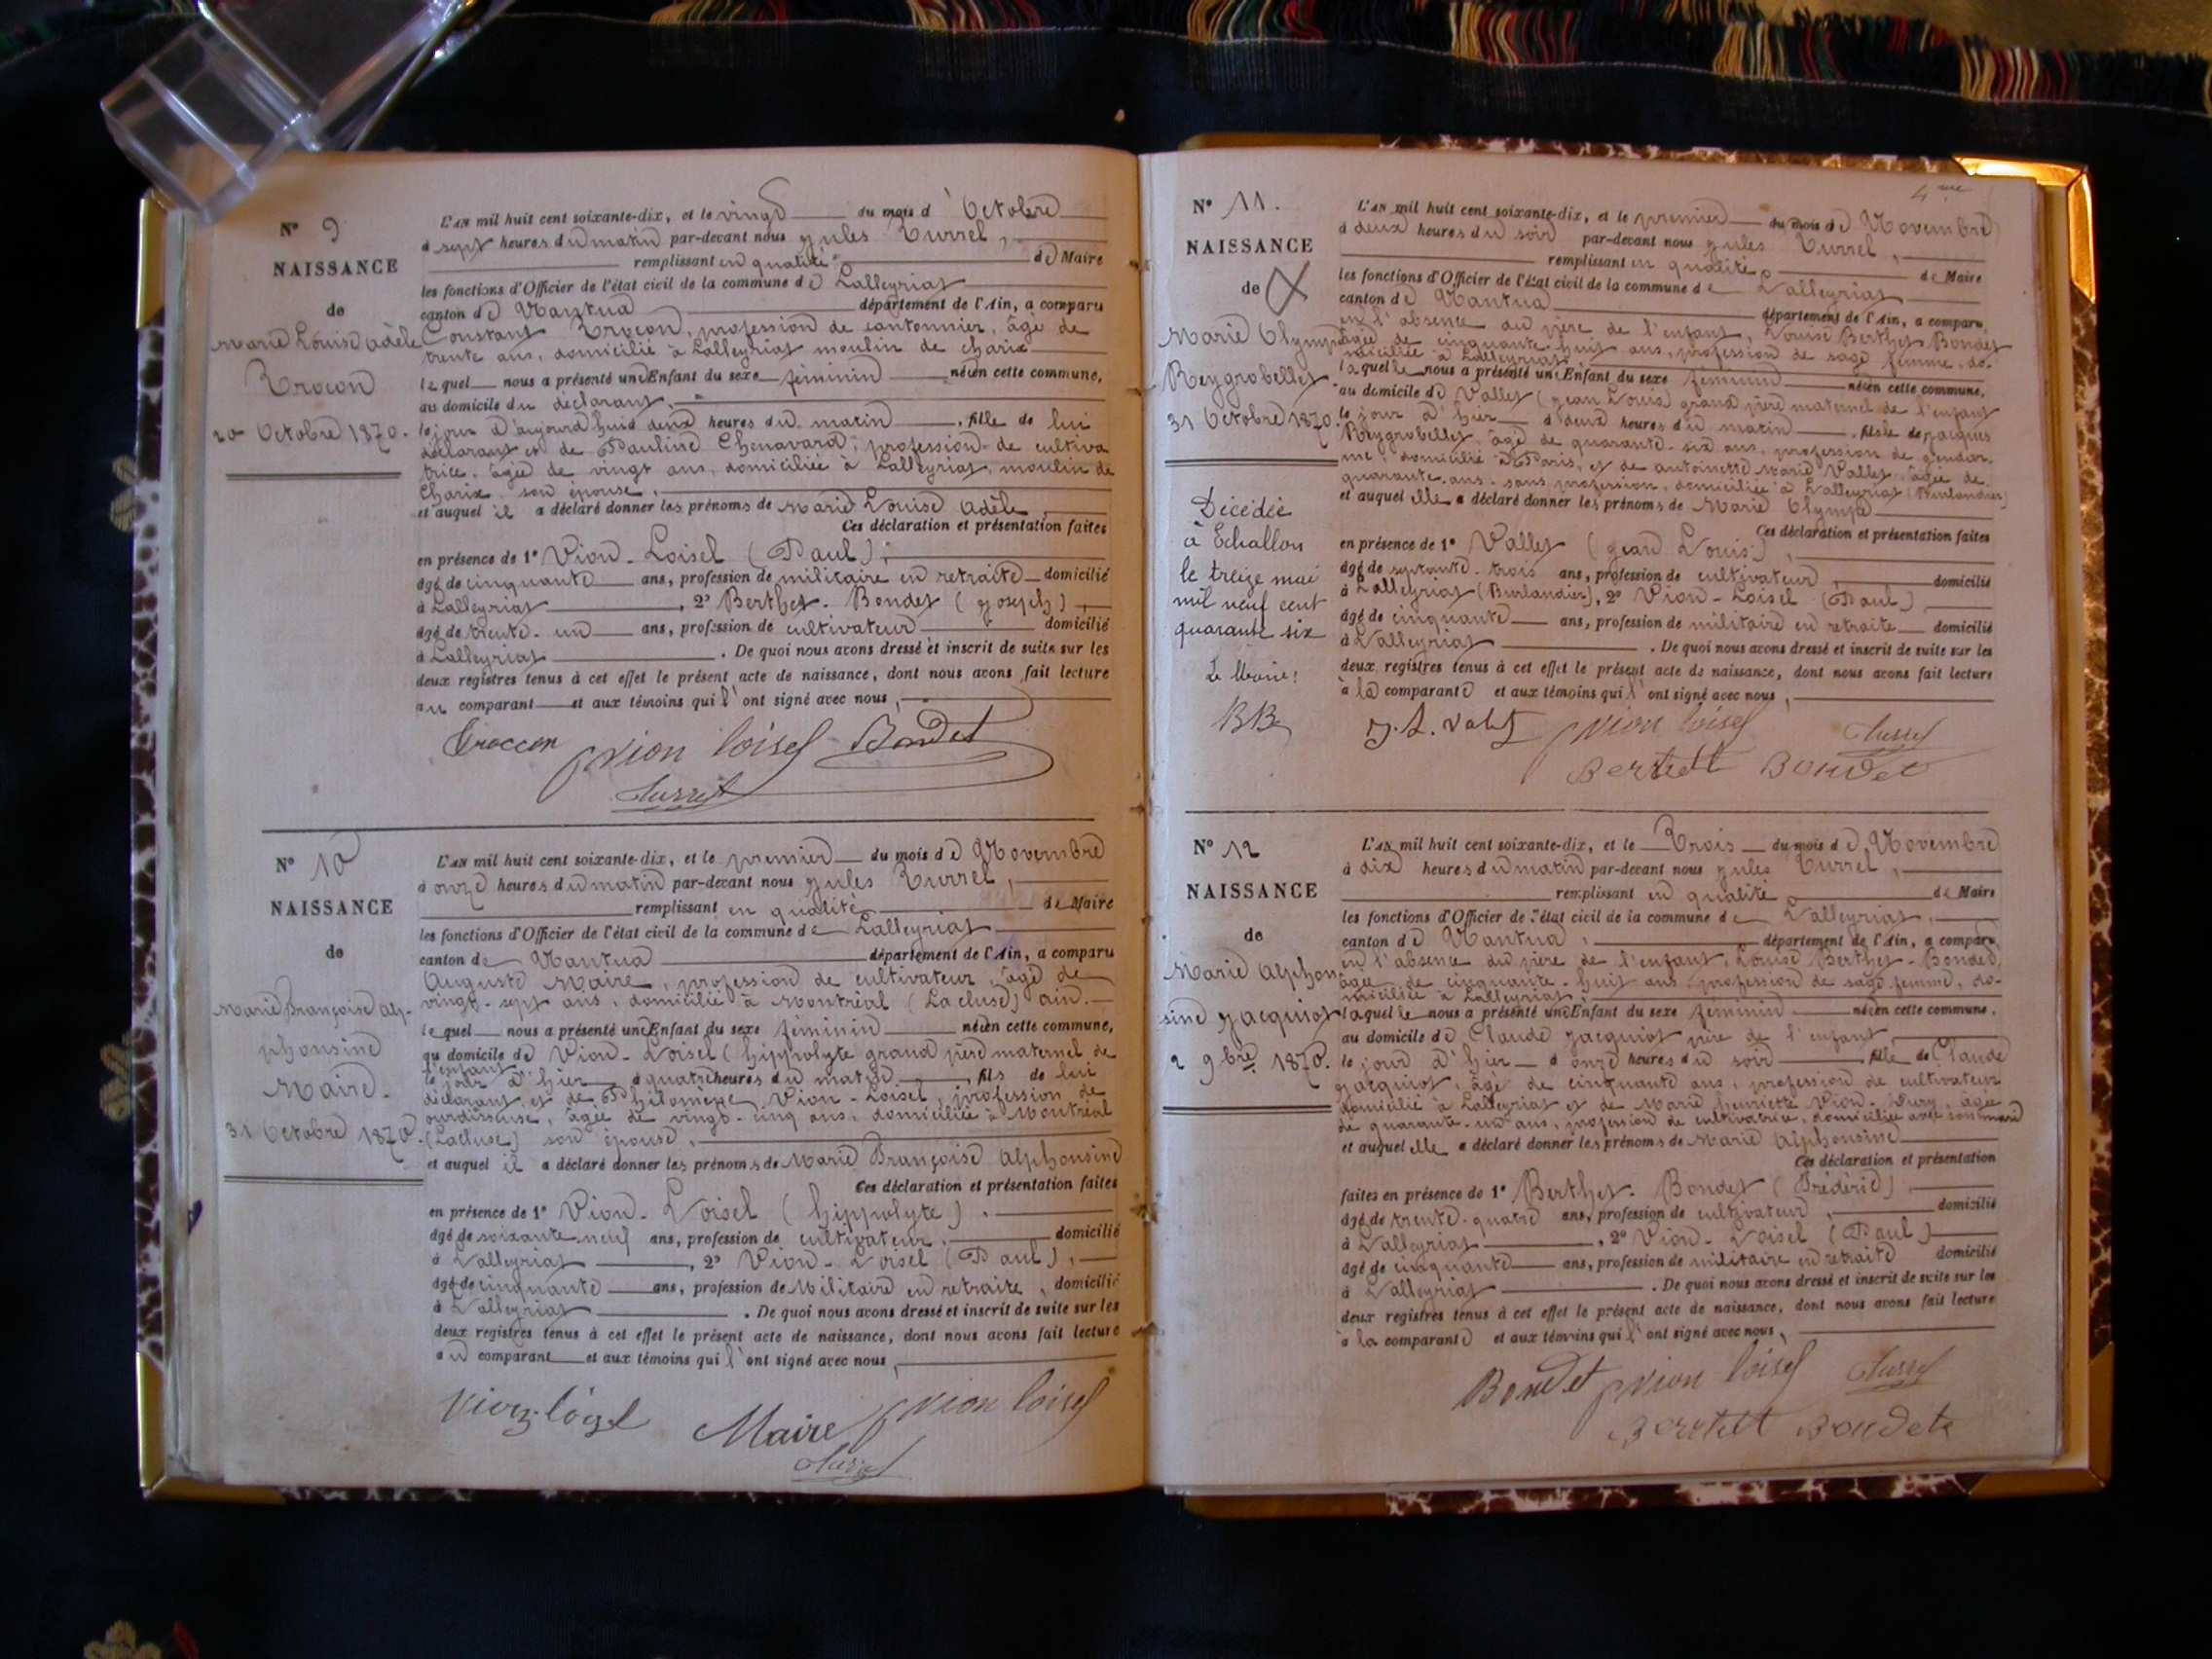 N° 9
NAISSANCE
de
Marie Louise Adèle
Trocon
20 Octobre 1870.
L'AN mil huit cent soixante-dix, et le vingt du mois d'Octobre
à sept heures du matin par-devant nous Jules Turrel,
remplissant en qualité de Maire
les fonctions d'Officier de l'état civil de la commune de Lalleyriat
canton de Nantua département de l'Ain, a comparu
Constant Trocon, profession de cantonnier, âgé de
trente ans, domicilié à Lalleyriat moulin de Charix
lequel nous a présenté un Enfant du sexe féminin né en cette commune,
au domicile du déclarant,
le jour d'aujourd'hui à deux heures du matin, fille de lui
déclarant et de Pauline Chenavard, profession de cultiva
trice, âgée de vingt ans, domiciliée à Lalleyriat, moulin de
Charix, son épouse,
et auquel il a déclaré donner les prénoms de Marie Louise Adèle,
Ces déclaration et présentation faites
en présence de 1° Vion-Loisel (Paul),
âgé de cinquante ans, profession de militaire en retraite domicilié
à Lalleyriat, 2° Berthet-Bondet (Joseph),
âgé de trente-un ans, profession de cultivateur domicilié
à Lalleyriat. De quoi nous avons dressé et inscrit de suite sur les
deux registres tenus à cet effet le présent acte de naissance, dont nous avons fait lecture
au comparant et aux témoins qui l'ont signé avec nous,
Troccon Vion loisel Bondet
Turrel
N° 10
NAISSANCE
de
Marie Françoise Al-
phonsine
Maire.
31 Octobre 1870.
L'AN mil huit cent soixante-dix, et le premier du mois de Novembre
à onze heures du matin par-devant nous Jules Turrel,
remplissant en qualité de Maire
les fonctions d'Officier de l'état civil de la commune de Lalleyriat
canton de Nantua département de l'Ain, a comparu
Auguste Maire, profession de cultivateur, âgé de
vingt-sept ans, domicilié à Montréal (La cluse) ain.
lequel nous a présenté un Enfant du sexe féminin né en cette commune,
au domicile de Vion-Loisel (hippolyte grand père maternel de
l'enfant
le jour d'hier à quatre heures du matin, fils de lui
déclarant et de Philomène Vion-Loisel, profession de
ourdisseuse, âgée de vingt-cinq ans, domiciliée à Montréal
(Lacluse) son épouse,
et auquel il a déclaré donner les prénoms de Marie Françoise Alphonsine
Ces déclaration et présentation faites
en présence de 1° Vion-Loisel (hippolyte).
âgé de soixante-neuf ans, profession de cultivateur, domicilié
à Lalleyriat, 2° Vion-Loisel (Paul),
âgé de cinquante ans, profession de Militaire en retraite, domicilié
à Lalleyriat. De quoi nous avons dressé et inscrit de suite sur les
deux registres tenus à cet effet le présent acte de naissance, dont nous avons fait lecture
au comparant et aux témoins qui l'ont signé avec nous,
Vion-loisel Maire Vion loisel
Turrel
4me
N° 11.
NAISSANCE
de
Marie Olympe
Reygrobellet
31 Octobre 1870.
Décédée
à Echallon
le treize mai
mil neuf cent
quarante six
Le Maire:
L'AN mil huit cent soixante-dix, et le premier du mois de Novembre
à deux heures du soir par-devant nous Jules Turrel,
remplissant en qualité de Maire
les fonctions d'Officier de l'état civil de la commune de Lalleyriat
canton de Nantua département de l'Ain, a comparu,
en l'absence du père de l'enfant, Louise Berthet-Bondet
âgée de cinquante-huit ans, profession de sage femme, do-
miciliée à Lalleyriat,
laquelle nous a présenté un Enfant du sexe féminin né en cette commune,
au domicile de Vallet (Jean Louis) grand père maternel de l'enfant
le jour d'hier à deux heures du matin, fille de Jacques
Reygrobellet, âgé de quarante-six ans, profession de gendar-
me, domicilié à Paris, et de Antoinette Marie Vallet, âgée de
quarante ans, sans profession, domiciliée à Lalleyriat (Burlandier)
et auquel elle a déclaré donner les prénoms de Marie Olympe
Ces déclaration et présentation faites
en présence de 1° Vallet (Jean Louis),
âgé de septante-trois ans, profession de cultivateur, domicilié
à Lalleyriat (Burlandier), 2° Vion-Loisel (Paul),
âgé de cinquante ans, profession de militaire en retraite domicilié
à Lalleyriat. De quoi nous avons dressé et inscrit de suite sur les
deux registres tenus à cet effet le présent acte de naissance, dont nous avons fait lecture
à la comparante et aux témoins qui l'ont signé avec nous,
J. L. Valet Vion loisel Turrel
Bertett Bondet
N° 12
NAISSANCE
de
Marie Alphon
sine Jacquiot
2 9bre 1870.
L'AN mil huit cent soixante-dix, et le Trois du mois de Novembre
à dix heures du matin par-devant nous Jules Turrel,
remplissant en qualité de Maire
les fonctions d'Officier de l'état civil de la commune de Lalleyriat,
canton de Nantua, département de l'Ain, a comparu,
en l'absence du père de l'enfant, Louise Berthet-Bondet,
âgée de cinquante-huit ans, profession de sage femme, do-
miciliée à Lalleyriat
laquelle nous a présenté un Enfant du sexe féminin né en cette commune,
au domicile de Claude Jacquiot père de l'enfant,
le jour d'hier à onze heures du soir, fille de Claude
Jacquiot, âgé de cinquante ans, profession de cultivateur
domicilié à Lalleyriat et de Marie henriette Vion-Dury, âgée
de quarante-un ans, profession de cultivatrice, domiciliée avec son mari
et auquel elle a déclaré donner les prénoms de Marie Alphonsine
Ces déclaration et présentation
faites en présence de 1° Berthet-Bondet (Fréderic)
âgé de trente-quatre ans, profession de cultivateur, domicilié
à Lalleyriat, 2° Vion-Loisel (Paul)
âgé de cinquante ans, profession de militaire en retraite domicilié
à Lalleyriat. De quoi nous avons dressé et inscrit de suite sur les
deux registres tenus à cet effet le présent acte de naissance, dont nous avons fait lecture
à la comparante et aux témoins qui l'ont signé avec nous,
Bondet Vion loisel Turrel
Bertett Bondet